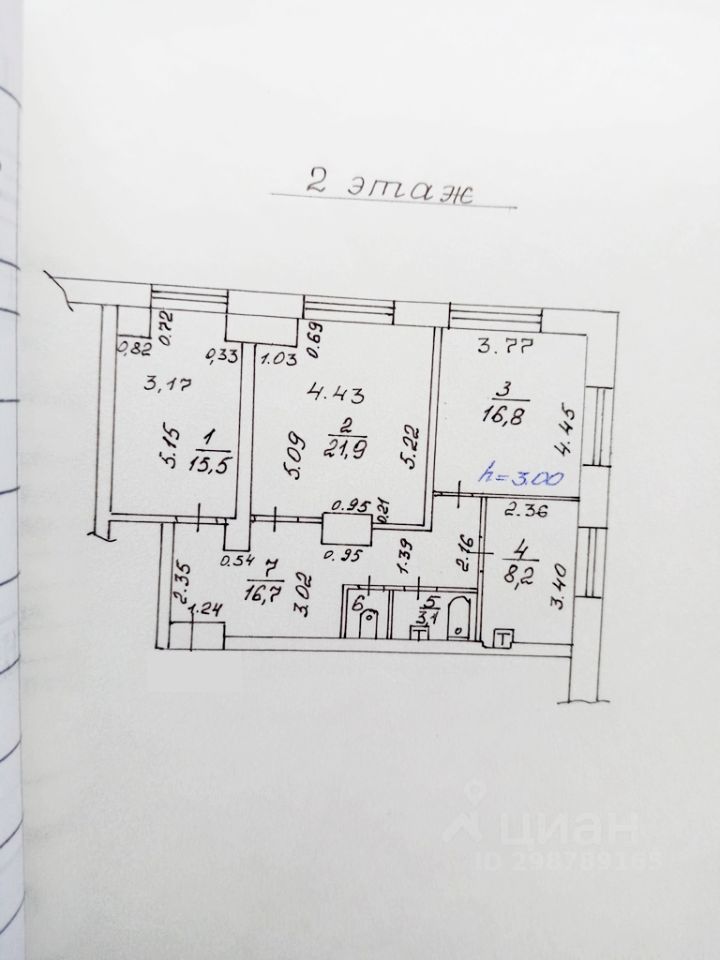 2 этаж
0,82
0.72
0,33
1.03
0.69
3.77
3,17
4.43
3
16,8
4.45
5.15
1
15,5
5.09
2
21,9
5.22
h=3.00
0.95
0.21
2.36
0.54
0.95
1.39
2.16
4
8,2
3.40
2.35
7
16,7
3.02
1.24
6
5
3,1
Т
Т
циан
ID 298789165